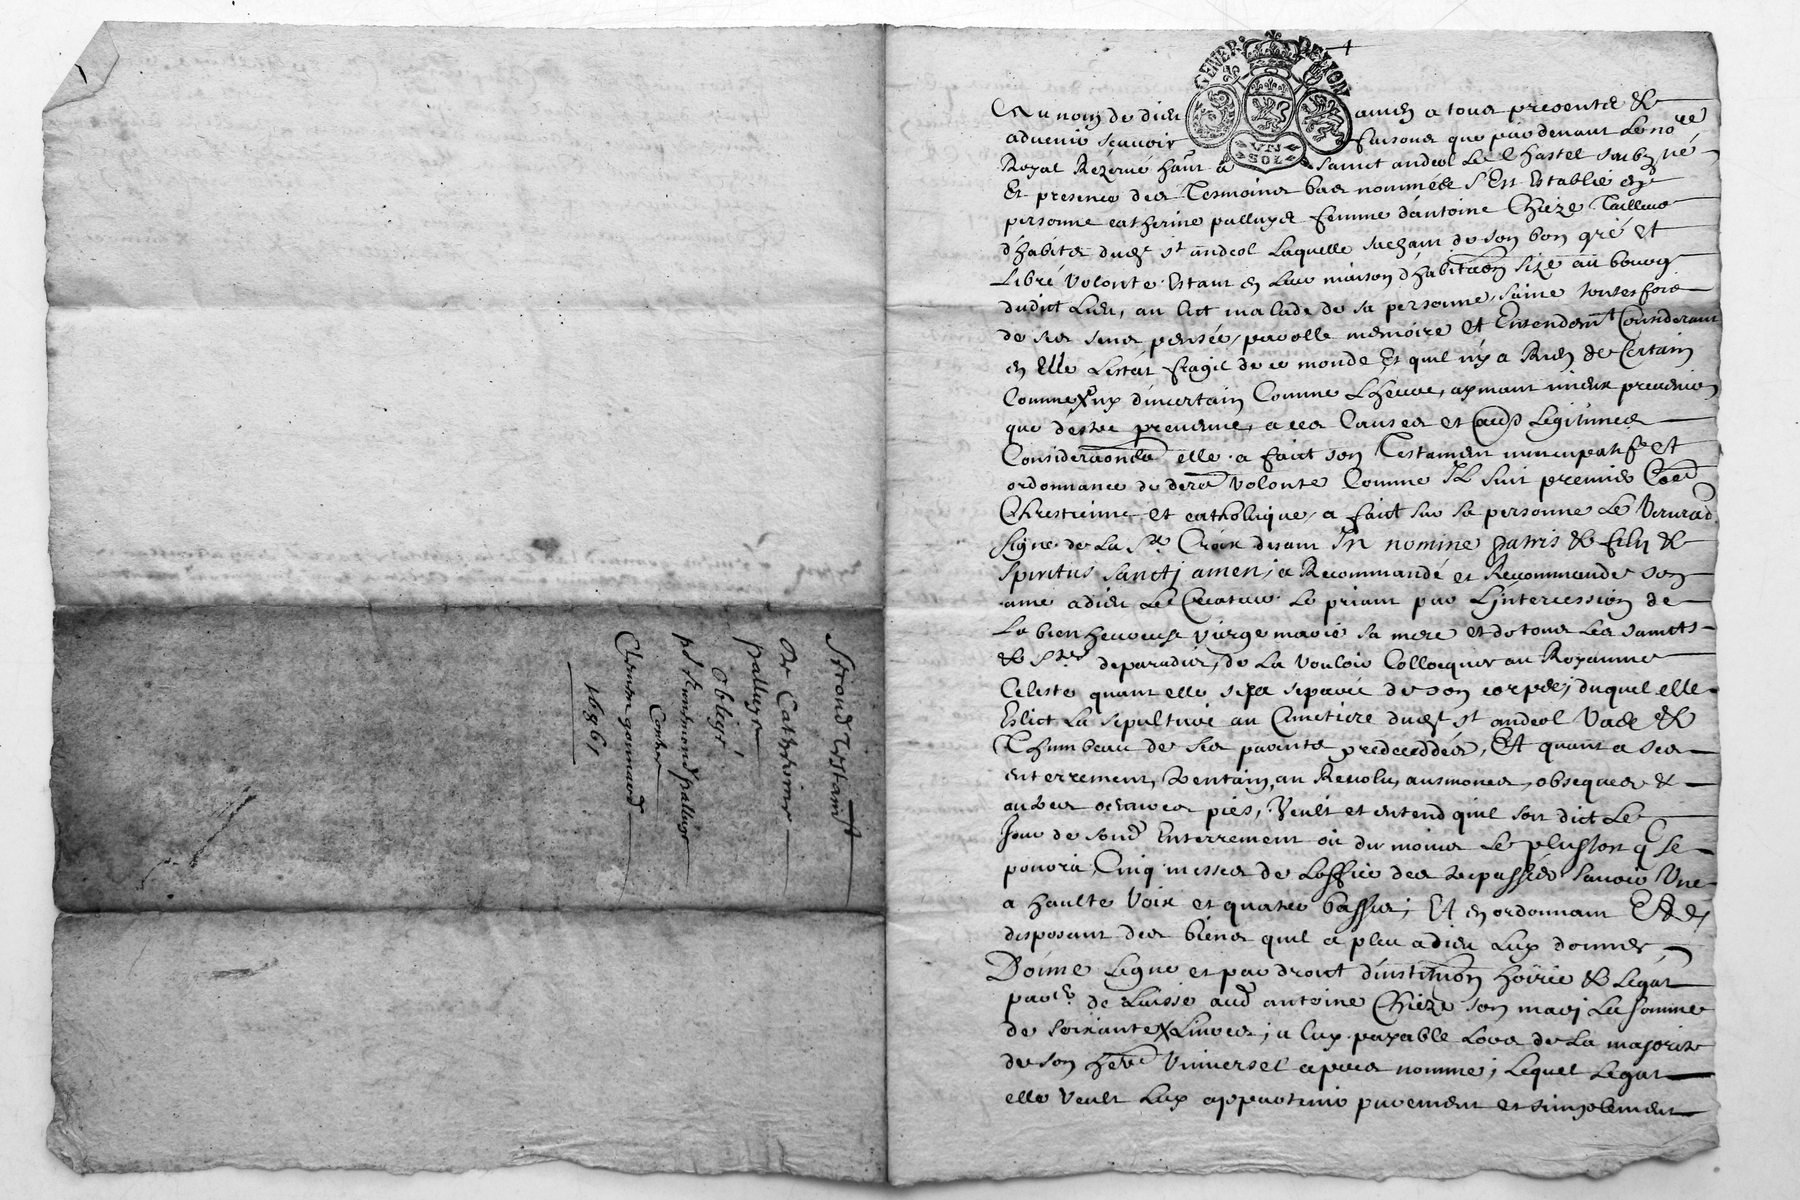 GENER. DE LYON
VN
SOL
Au nom de dieu amen a tous presents &
advenir scavoir faisons que pardevant le nore
Royal Rezervé hañt a sainct andeol le Chastel soubzné
Et presence des Tesmoins bas nommés s'Est Establie en
personne catherine palluyé femme d'antoine Chieze Tailleur
d'habits dudt st andeol laquelle sachant de son bon gré et
Libré Volonté Estant en leur maison d'habitaon size au bourg
dudict lieu, au lict malade de sa personne, saine toutesfois
de ses sens pensée, parolle mémoire et Entendemt Considerant
en Elle L'estat fragil de ce monde Et quil n'y a Rien de Certain
Comme ny d'incertain Comme L'heure, aymant mieux prevenir
que d'estre prevenue, a ces Causes et auts Legitimes
Consideraons elle a faict son Testament nuncupatif et
ordonnance de dere Volonté Comme Il suit premier Coe
Chrestienne et catholique, a faict sur sa personne Le Venerad
signe de La Ste Croix disant In nomine patris & filij &
spiritus sanctj amen, a Recommandé et Recommande son
ame a dieu Le Createur Le priant par L'intercession de
La bien heureuse vierge marie sa mere et de tous Les saincts
& Stes de paradis, de La vouloir Collocquer au Royaume
Celeste quant elle sera separée de son corps; duquel elle
Eslict La sepulture au Cimetiere dudt st andeol Vase &
Thumbeau de ses parents predeceddés, Et quant a ses
enterrement, Quantain, au Revolu, ausmones, obseques &
autres oeuvres pies, Veult et entend quil soit dict Le
Jour de sond Enterrement ou du moins Le plustost q se
pourra Cinq messes de Loffice des trepassés savoir Une
a haulte Voix et quatre basses; Et en ordonnant Et
disposant des biens quil a pleu a dieu Luy donner
Donne Legue et par droit d'institution hoirie & Legat
parer delaisse aud antoine Chieze son mary La somme
de soixante Livres; a luy payable Lors de La majorité
de son her Universel apres nommé; Lequel Legat
elle veult Luy appartenir purement et simplement
Testamt
De Catherine
palluyé
Obligé
pr simhmond palluyé
Contre
Clermon gonnard
1696